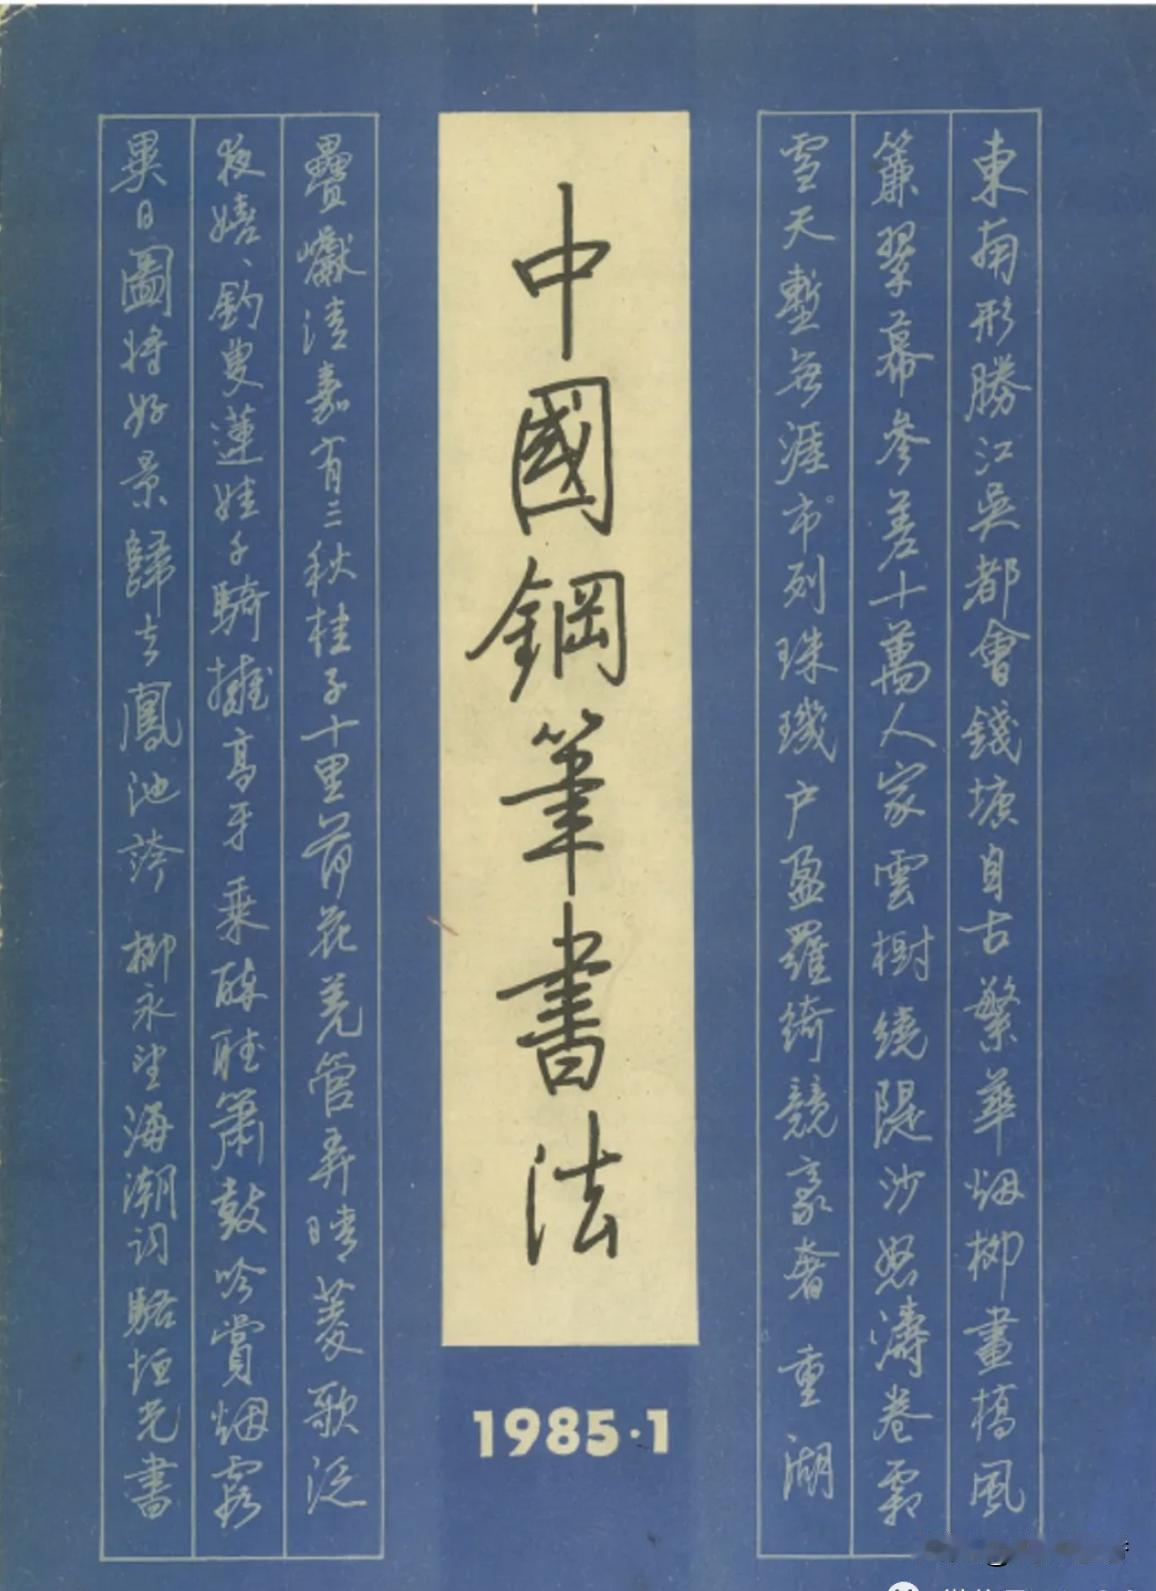 東南形勝江吳都會錢塘自古繁華烟柳畫橋風
簾翠幕參差十萬人家雲樹繞隄沙怒濤卷霜
雪天塹無涯市列珠璣户盈羅綺競豪奢 重湖
中國鋼筆書法
1985·1
疊巘清嘉有三秋桂子十里荷花羌管弄晴菱歌泛
夜嬉、釣叟蓮娃千騎擁高牙乘醉聽簫鼓吟賞烟霞
異日圖將好景歸去鳳池誇 柳永望海潮詞駱恒光書